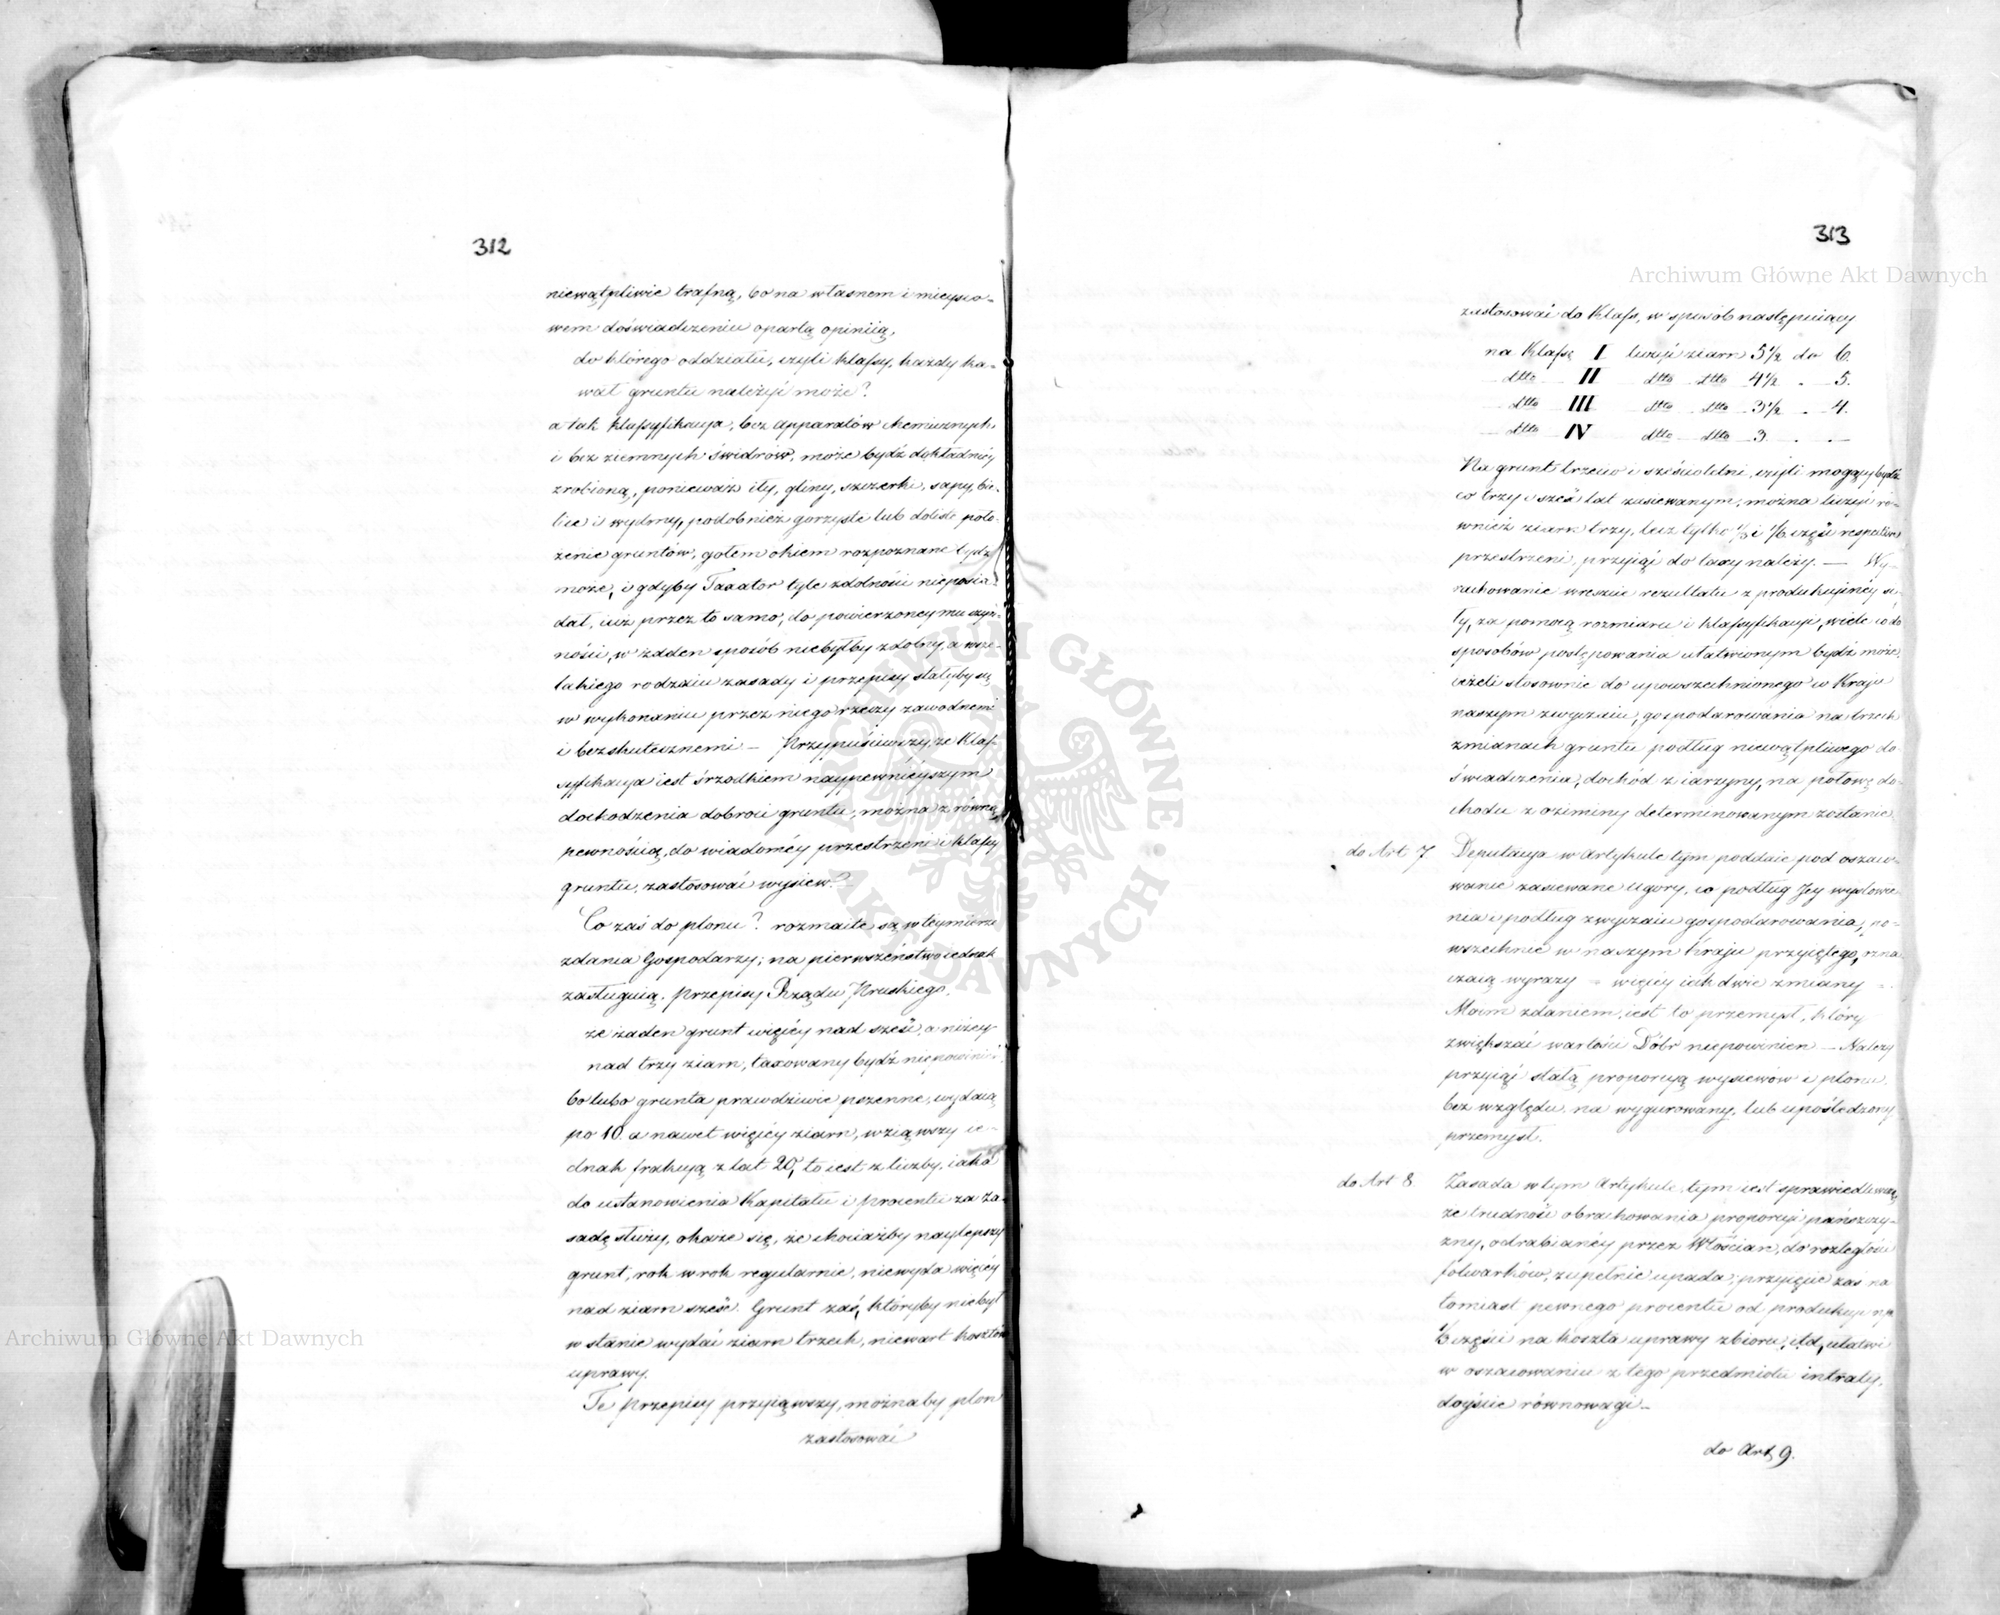 312
niewątpliwie trafną, bo na własnem i mieysco-
wem doświadczeniu opartą opiniią,
do którego oddziału, czyli klassy, każdy ka-
wał gruntu należyć może?
a tak klassyfikacya, bez apparatów chemicznych
i bez ziemnych świdrów, może bydź dokładniéy
zrobioną, ponieważ iły, gliny, szczerki, sapy, bie-
lice i wydmy, podobnież gorzyste lub doliste poło-
żenie gruntów, gołem okiem rozpoznane bydź
może, i gdyby Taxator tyle zdolności nieposia-
dał, iuż przez to samo, do powierzoney mu czyn-
ności, w żaden sposób niebyłby zdolny, a wsze-
lakiego rodzaiu zasady i przepisy stałyby się
w wykonaniu przez niego rzeczy zawodnemi
i bezskutecznemi — Przypuściwszy, że Klas-
syfikacya iest śrzodkiem naypewniéyszym
dochodzenia dobroci gruntu, można z równą
pewnością, do wiadoméy przestrzeni i klassy
gruntu, zastosować wysiew.—
Co zaś do plonu? rozmaite są w teymierze
zdania Gospodarzy; na pierwszeństwo iednak
zasługuią, przepisy Rządu Pruskiego,
że żaden grunt więcéy nad sześć, a niżey
nad trzy ziarn, taxowany bydź niepowinien
bo lubo grunta prawdziwie pszenne, wydaią
po 10. a nawet więcéy ziarn, wziąwszy ie-
dnak frakcyą z lat 20, to iest z liczby, iaka
do ustanowienia Kapitału i procentu za za-
sadę służy, okaże się, że chociażby naylepszy
grunt, rok w rok regularnie, niewyda więcéy
nad ziarn sześć. Grunt zaś, któryby niebył
w stanie wydać ziarn trzech, niewart kosztów
uprawy.
Te przepisy przyiąwszy, możnaby plon
zastosować
313
zastosować do Klass, w sposób następuiący
na Klassę I liczyć ziarn 5 1/2 do 6.
dtto II dtto dtto 4 1/2 . — 5.
dtto III dtto dtto 3 1/2 . — 4.
dtto IV dtto dtto 3. — . —
Na grunt trzecio i sześcioletni, czyli mogący bydź
co trzy i sześć lat zasiewanym, można liczyć ró-
wnież ziarn trzy, lecz tylko 1/3 i 1/6 część respective
przestrzeni, przyiąć do taxy należy. — Wy-
rachowanie wreszcie rezultatu z produkcyinéy si-
ły, za pomocą rozmiaru i klassyfikacyi, wiele co do
sposobów postępowania ułatwionym bydź może,
ieżeli stosownie do upowszechnionego w Kraju
naszym zwyczaiu, gospodarowania na trzech
zmianach gruntu podług niewątpliwego do-
świadczenia, dochód z iarzyny, na połowę do-
chodu z oziminy determinowanym zostanie
do Art 7 Deputacya w Artykule tym poddaie pod oszaco-
wanie zasiewane Ugory, co podług Jey wysłowie-
nia i podług zwyczaiu gospodarowania, po-
wszechnie w naszym Kraju przyiętego, ozna-
czaią wyrazy = więcéy iak dwie zmiany =.
Moim zdaniem, iest to przemysł, który
zwiększać wartości Dóbr niepowinien — Należy
przyiąć stałą proporcyą wysiewów i plonu,
bez względu, na wygurowany, lub upośledzony
przemysł.
do Art 8 Zasada w tym Artykule, tym iest sprawiedliwszą,
że trudność obrachowania proporcyi pańszczy-
zny, odrabianéy przez Włościan, do rozległości
folwarków, zupełnie upada; przyięcie zaś na
tomiast pewnego procentu od produkcyi np.
1/3 części na koszta uprawy zbioru, itd, ułatwi
w oszacowaniu z tego przedmiotu intraty,
doyście równowagi —
do Art. 9.
Archiwum Główne Akt Dawnych
Archiwum Główne Akt Dawnych
ARCHIWUM GŁÓWNE AKT DAWNYCH